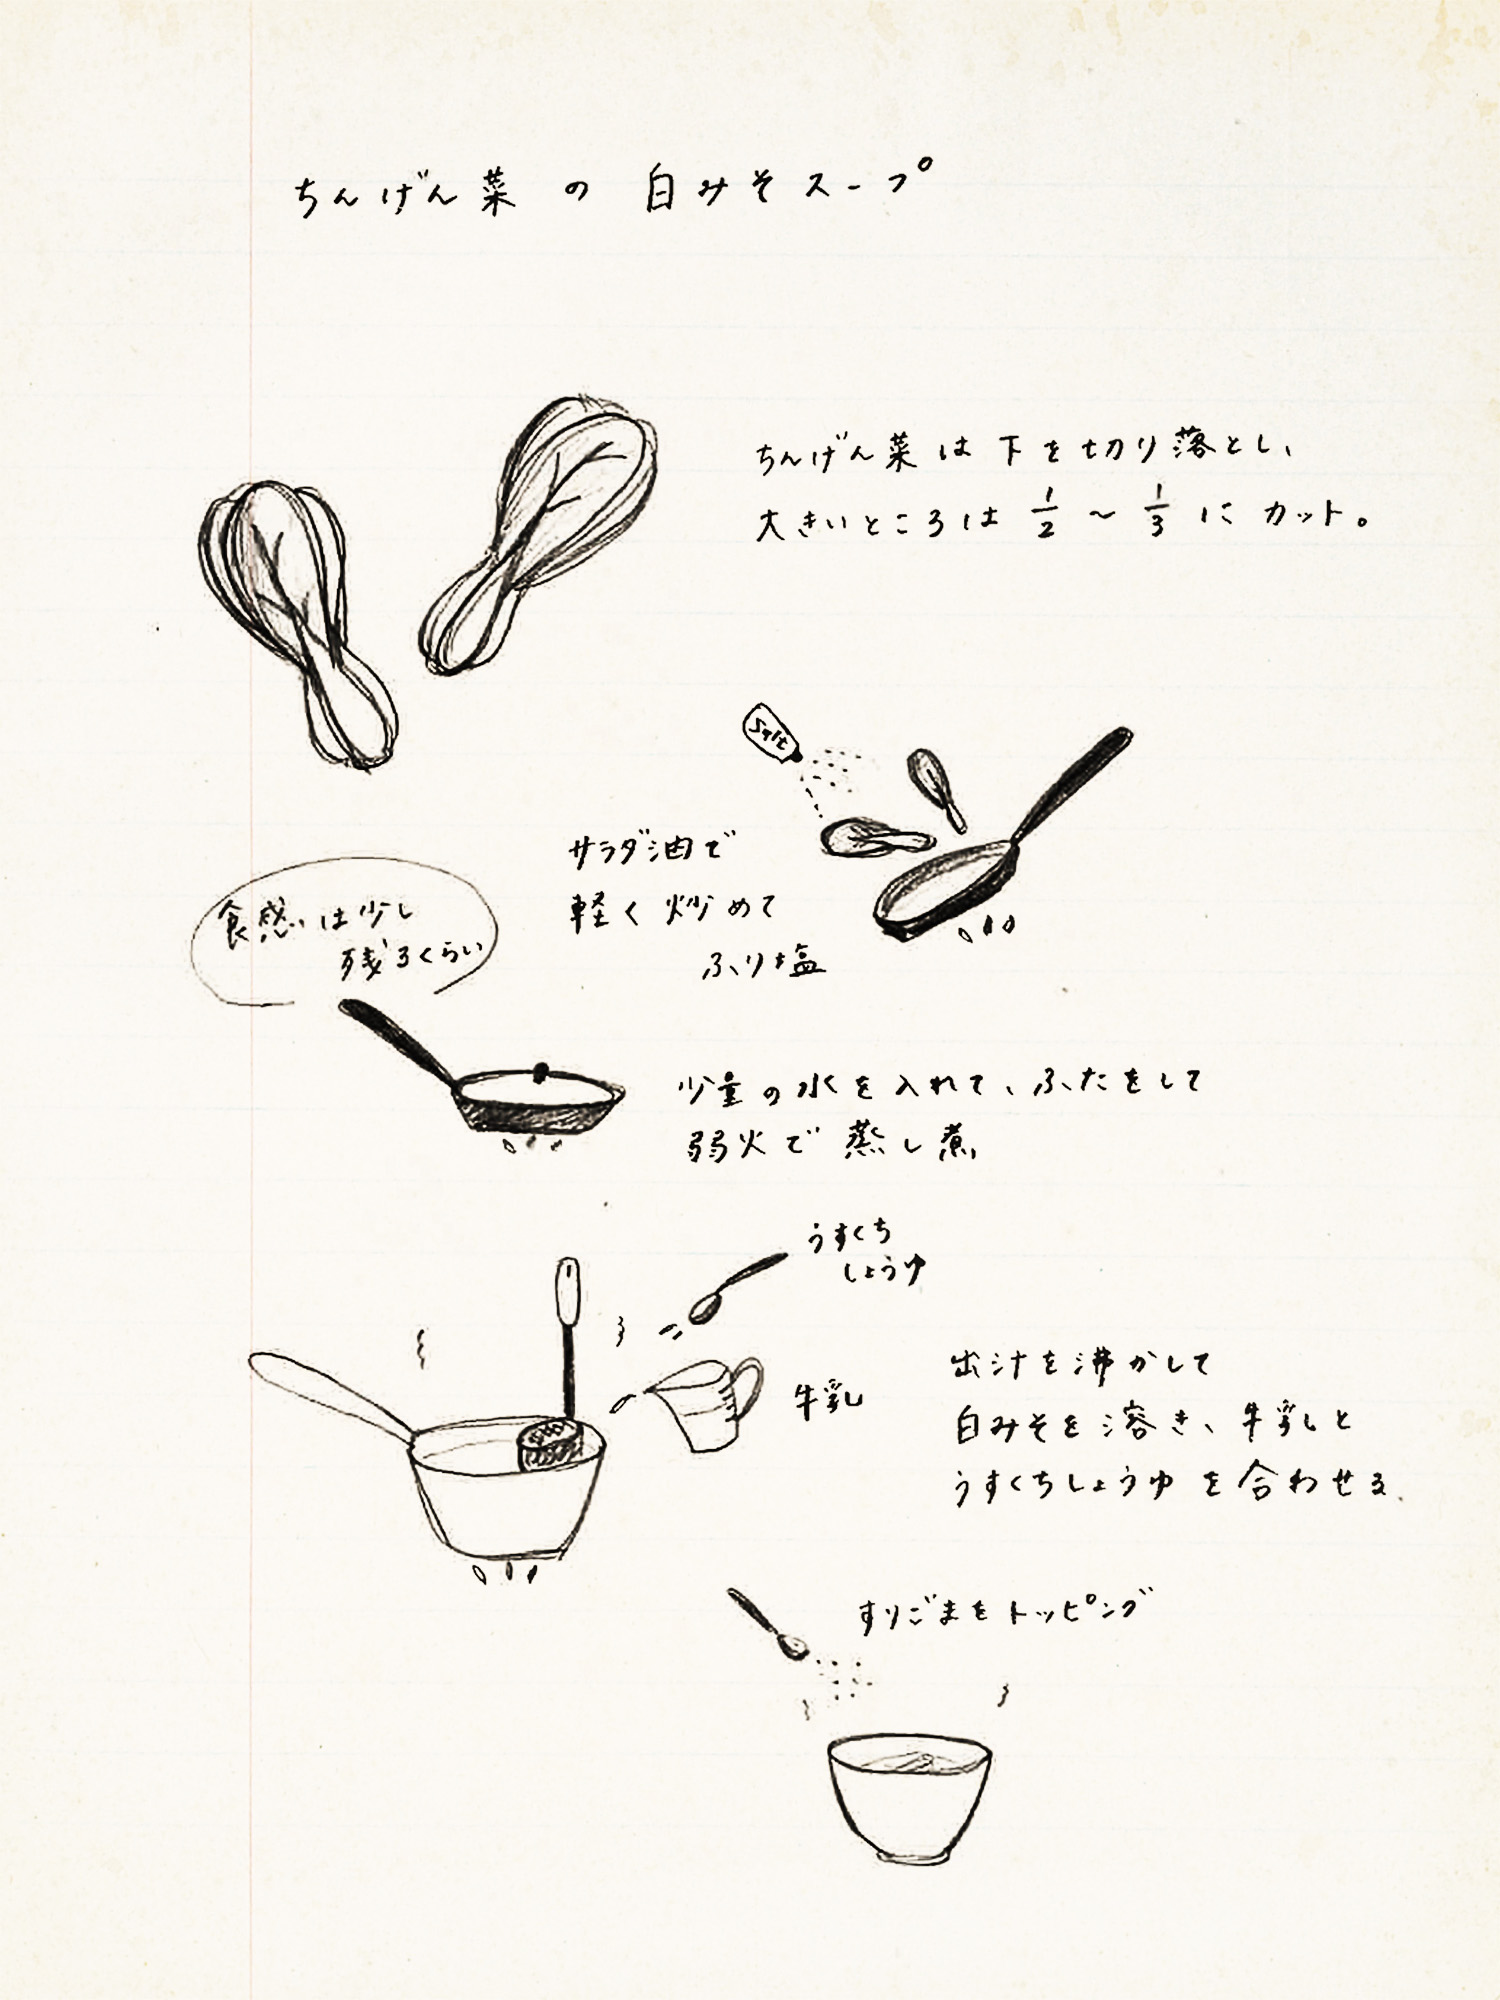 ちんげん菜の白みそスープ
ちんげん菜は下を切り落とし、
大きいところは1/2〜1/3にカット。
Salt
サラダ油で
軽く炒めて
ふり塩
食感は少し
残るくらい
少量の水を入れて、ふたをして
弱火で蒸し煮
うすくち
しょうゆ
牛乳
出汁を沸かして
白みそを溶き、牛乳と
うすくちしょうゆを合わせる。
すりごまをトッピング